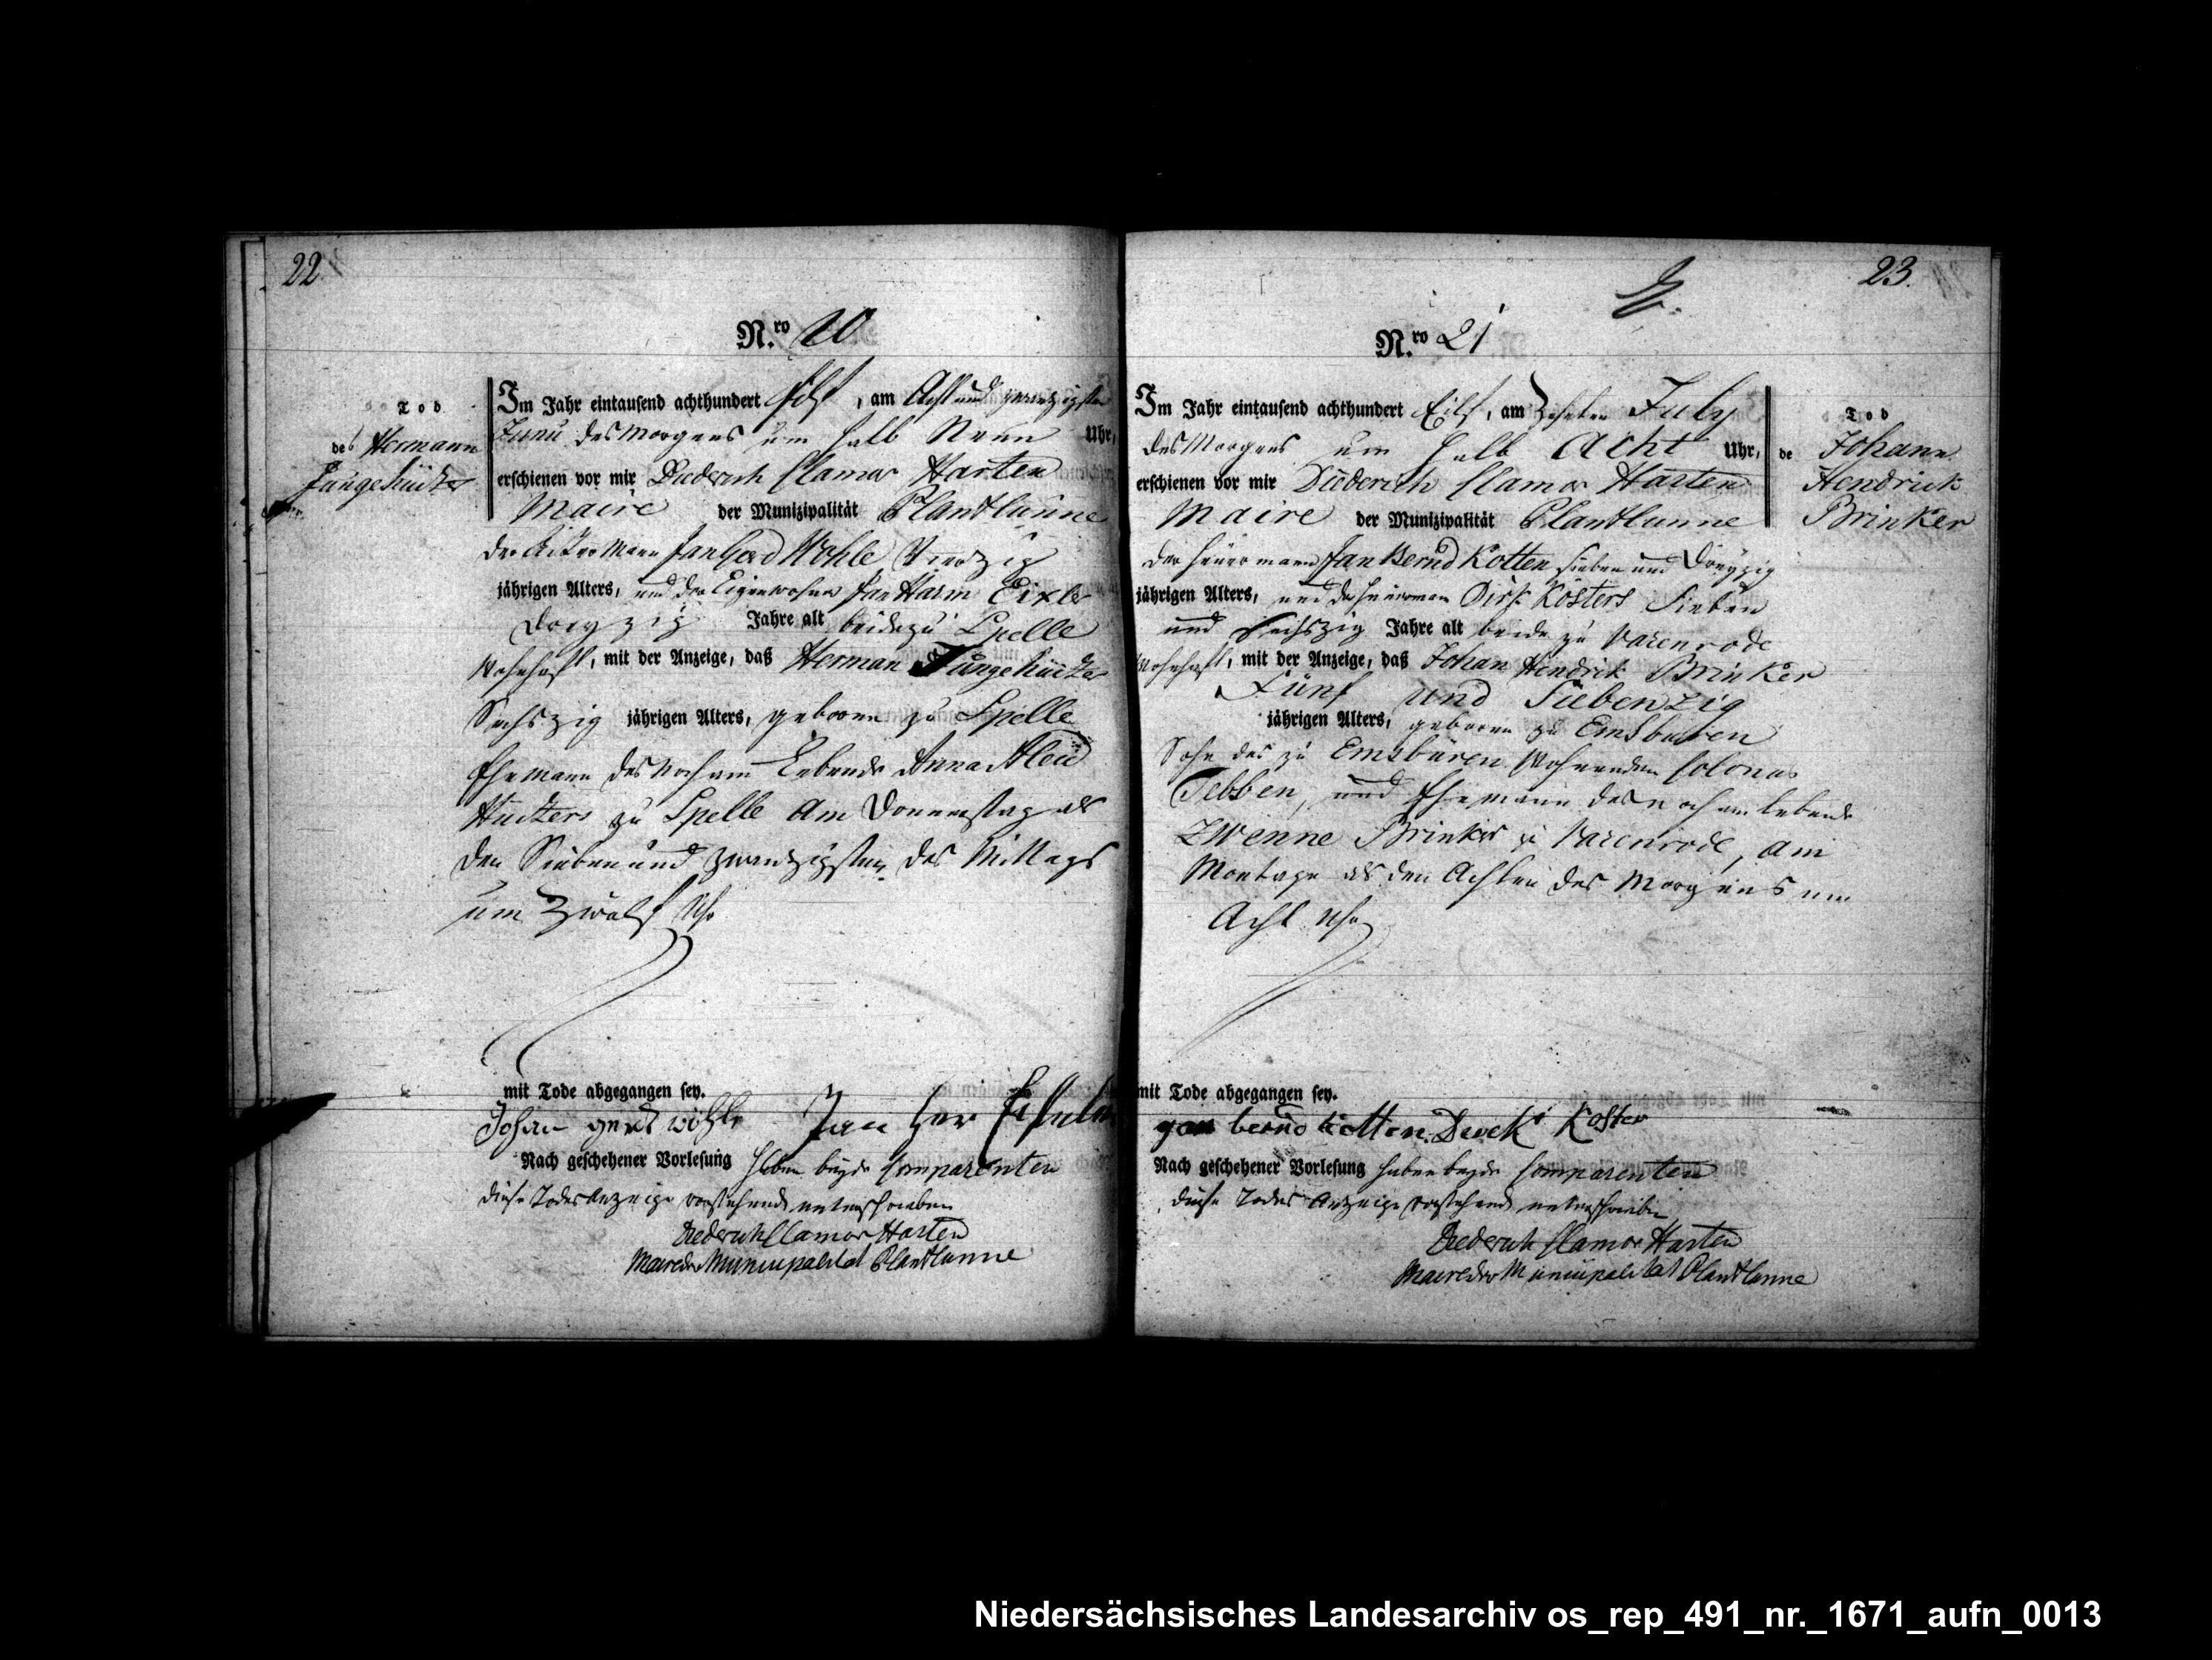 22.
N.ro 20
Tod
des Hermann
Jungehücker
Im Jahr eintausend achthundert Eilf, am Acht und zwanzigsten
Junii des Morgens um halb Neun Uhr,
erschienen vor mir Diederich Clamor Harten
Maire der Munizipalität Plantlünne
der Jan Gerd Wöhle Vierzig
jährigen Alters, und der Eigenwohner Jan Harm Eixler
Dreyzig Jahre alt beide zu Spelle
Wohnhaft, mit der Anzeige, daß Herman Jungehücker
Sechszig jährigen Alters, geboren zu Spelle
Ehemann der noch am Lebende Anna Aleid
Huckers zu Spelle am Donnerstag als
den Sieben und zwanzigsten des Mittags
um Zwölf Uhr
mit Tode abgegangen sey.
Johan gerd wöhle Jan Her
Nach geschehener Vorlesung haben beyde Comparenten
diese Todes Anzeige vorstehend unterschrieben
Diederich Clamor Harten
Maire der Municipalität Plantlünne
23.
N.ro 21
Im Jahr eintausend achthundert Eilf, am Zehnten July
des Morgens um halb Acht Uhr,
erschienen vor mir Diederich Clamor Harten
Maire der Munizipalität Plantlunne
Tod
de Johann
Hendrick
Brinker
der Heuermann Jan Bernd Kotten sieben und Dreyzig
jährigen Alters, und der Heuerman Dirk Kösters Sieben
und Sechszig Jahre alt beide zu Varenrode
Wohnhaft, mit der Anzeige, daß Johan Hendrik Brinker
Fünf und Siebenzig
jährigen Alters, geboren zu Emsbüren
Sohn des zu Emsbüren Wohnenden Colonus
Tebben, und Ehemann der noch am lebende
Zwenne Brinker zu Varenrode, am
Montage als den Achten des Morgens um
Acht Uhr
mit Tode abgegangen sey.
jan bernd kotten Dirck Koster
Nach geschehener Vorlesung haben beyde Comparenten
diese Todes Anzeige vorstehend unterschrieben
Diederich Clamor Harten
Maire der Municipalität Plantlunne
Niedersächsisches Landesarchiv os_rep_491_nr._1671_aufn_0013